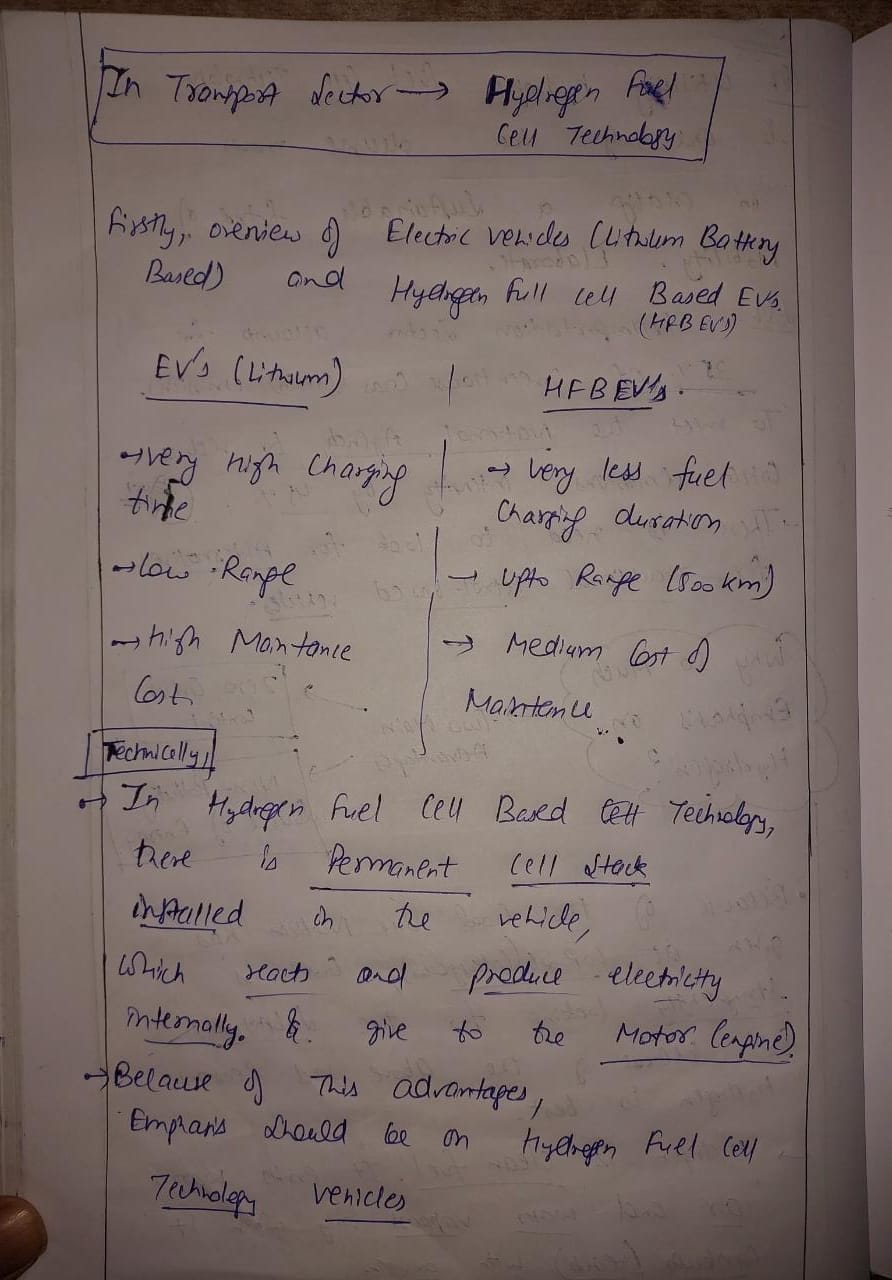 In Transport Sector → Hydrogen Fuel
Cell Technology
Firstly, overview of Electric vehicles (Lithium Battery
Based) and Hydrogen full cell Based EV's.
(HFB EV's)
EV's (Lithium) | HFBEV's.
→ very high Charging | → Very less fuel
time Charging duration
→ Low Range | → Upto Range (500 km)
→ High Maintance | → Medium Cost of
Cost Maintence
Technically,
→ In Hydrogen Fuel Cell Based Technology,
there is Permanent Cell Stack
installed in the vehicle,
Which reacts and produce electricity
internally. & give to the Motor (engine).
→ Because of This advantages,
Emphasis should be on Hydrogen Fuel Cell
Technology vehicles